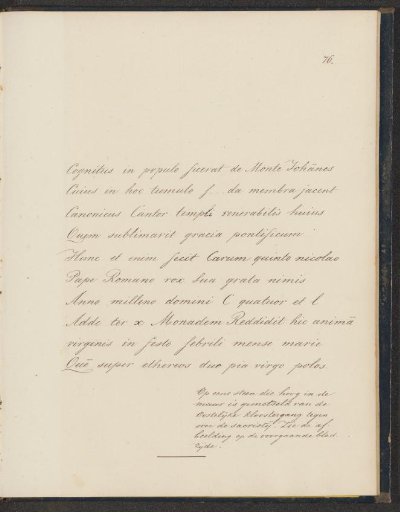 76.
Cognitus in populo fuerat de Monte Johānes
Cuius en hoc tumulo f. da membra jacent
Canonicus Cantor templi venerabilis huius
Quem sublimavit gracia pontificum
Hunc et enim fecit Carum quinto nicolao
Pape Romano vox sua grata nimis
Anno milleno domini C quatuor et l
Adde ter x Monadem Reddidit hic animā
virginis in festo febrili mense marie
Quē super ethereos duc pia virgo polos
Op eene steen die hoog in de
muur is gemetseld van de
Oostelijke kloostergang tegen
over de sacristij. Zie de af
beelding op de voorgaande blad
zijde.